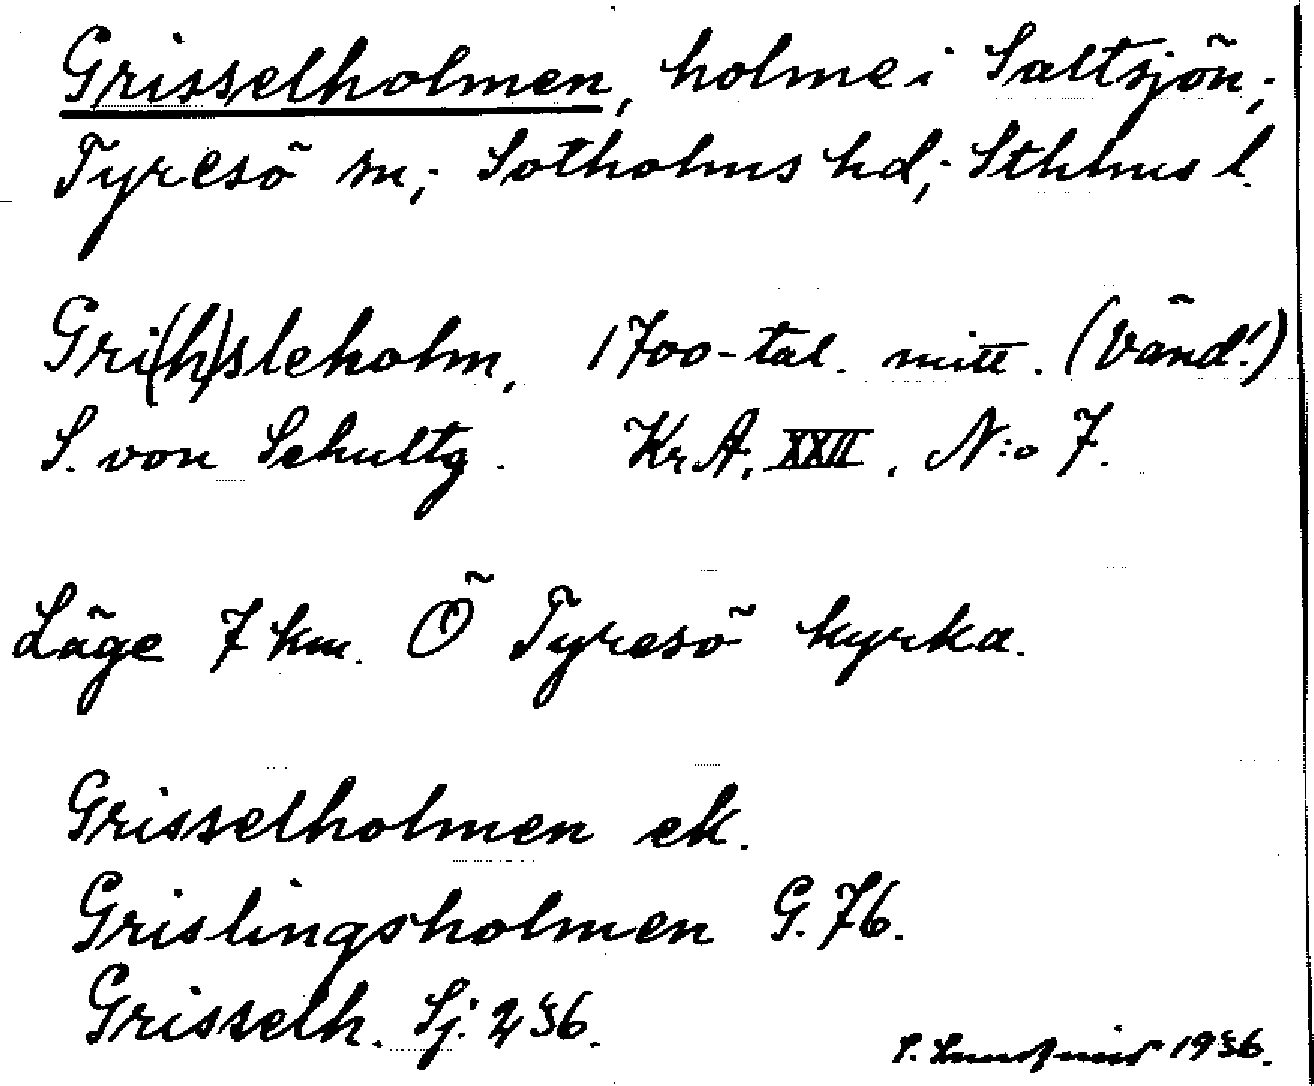 Grisselholmen, holme i Saltsjön,
Tyresö sn, Sotholms hd, Sthlms l.
Gri(h)sleholm, 1700-tal. mitt. (Vänd!)
S. von Schultz. Kr.A. XXII, N:o 7.
Läge 7 km. Ö Tyresö kyrka.
Grisselholmen ek.
Grislingsholmen G. 76.
Grisselh. Sj. 236.
1936.